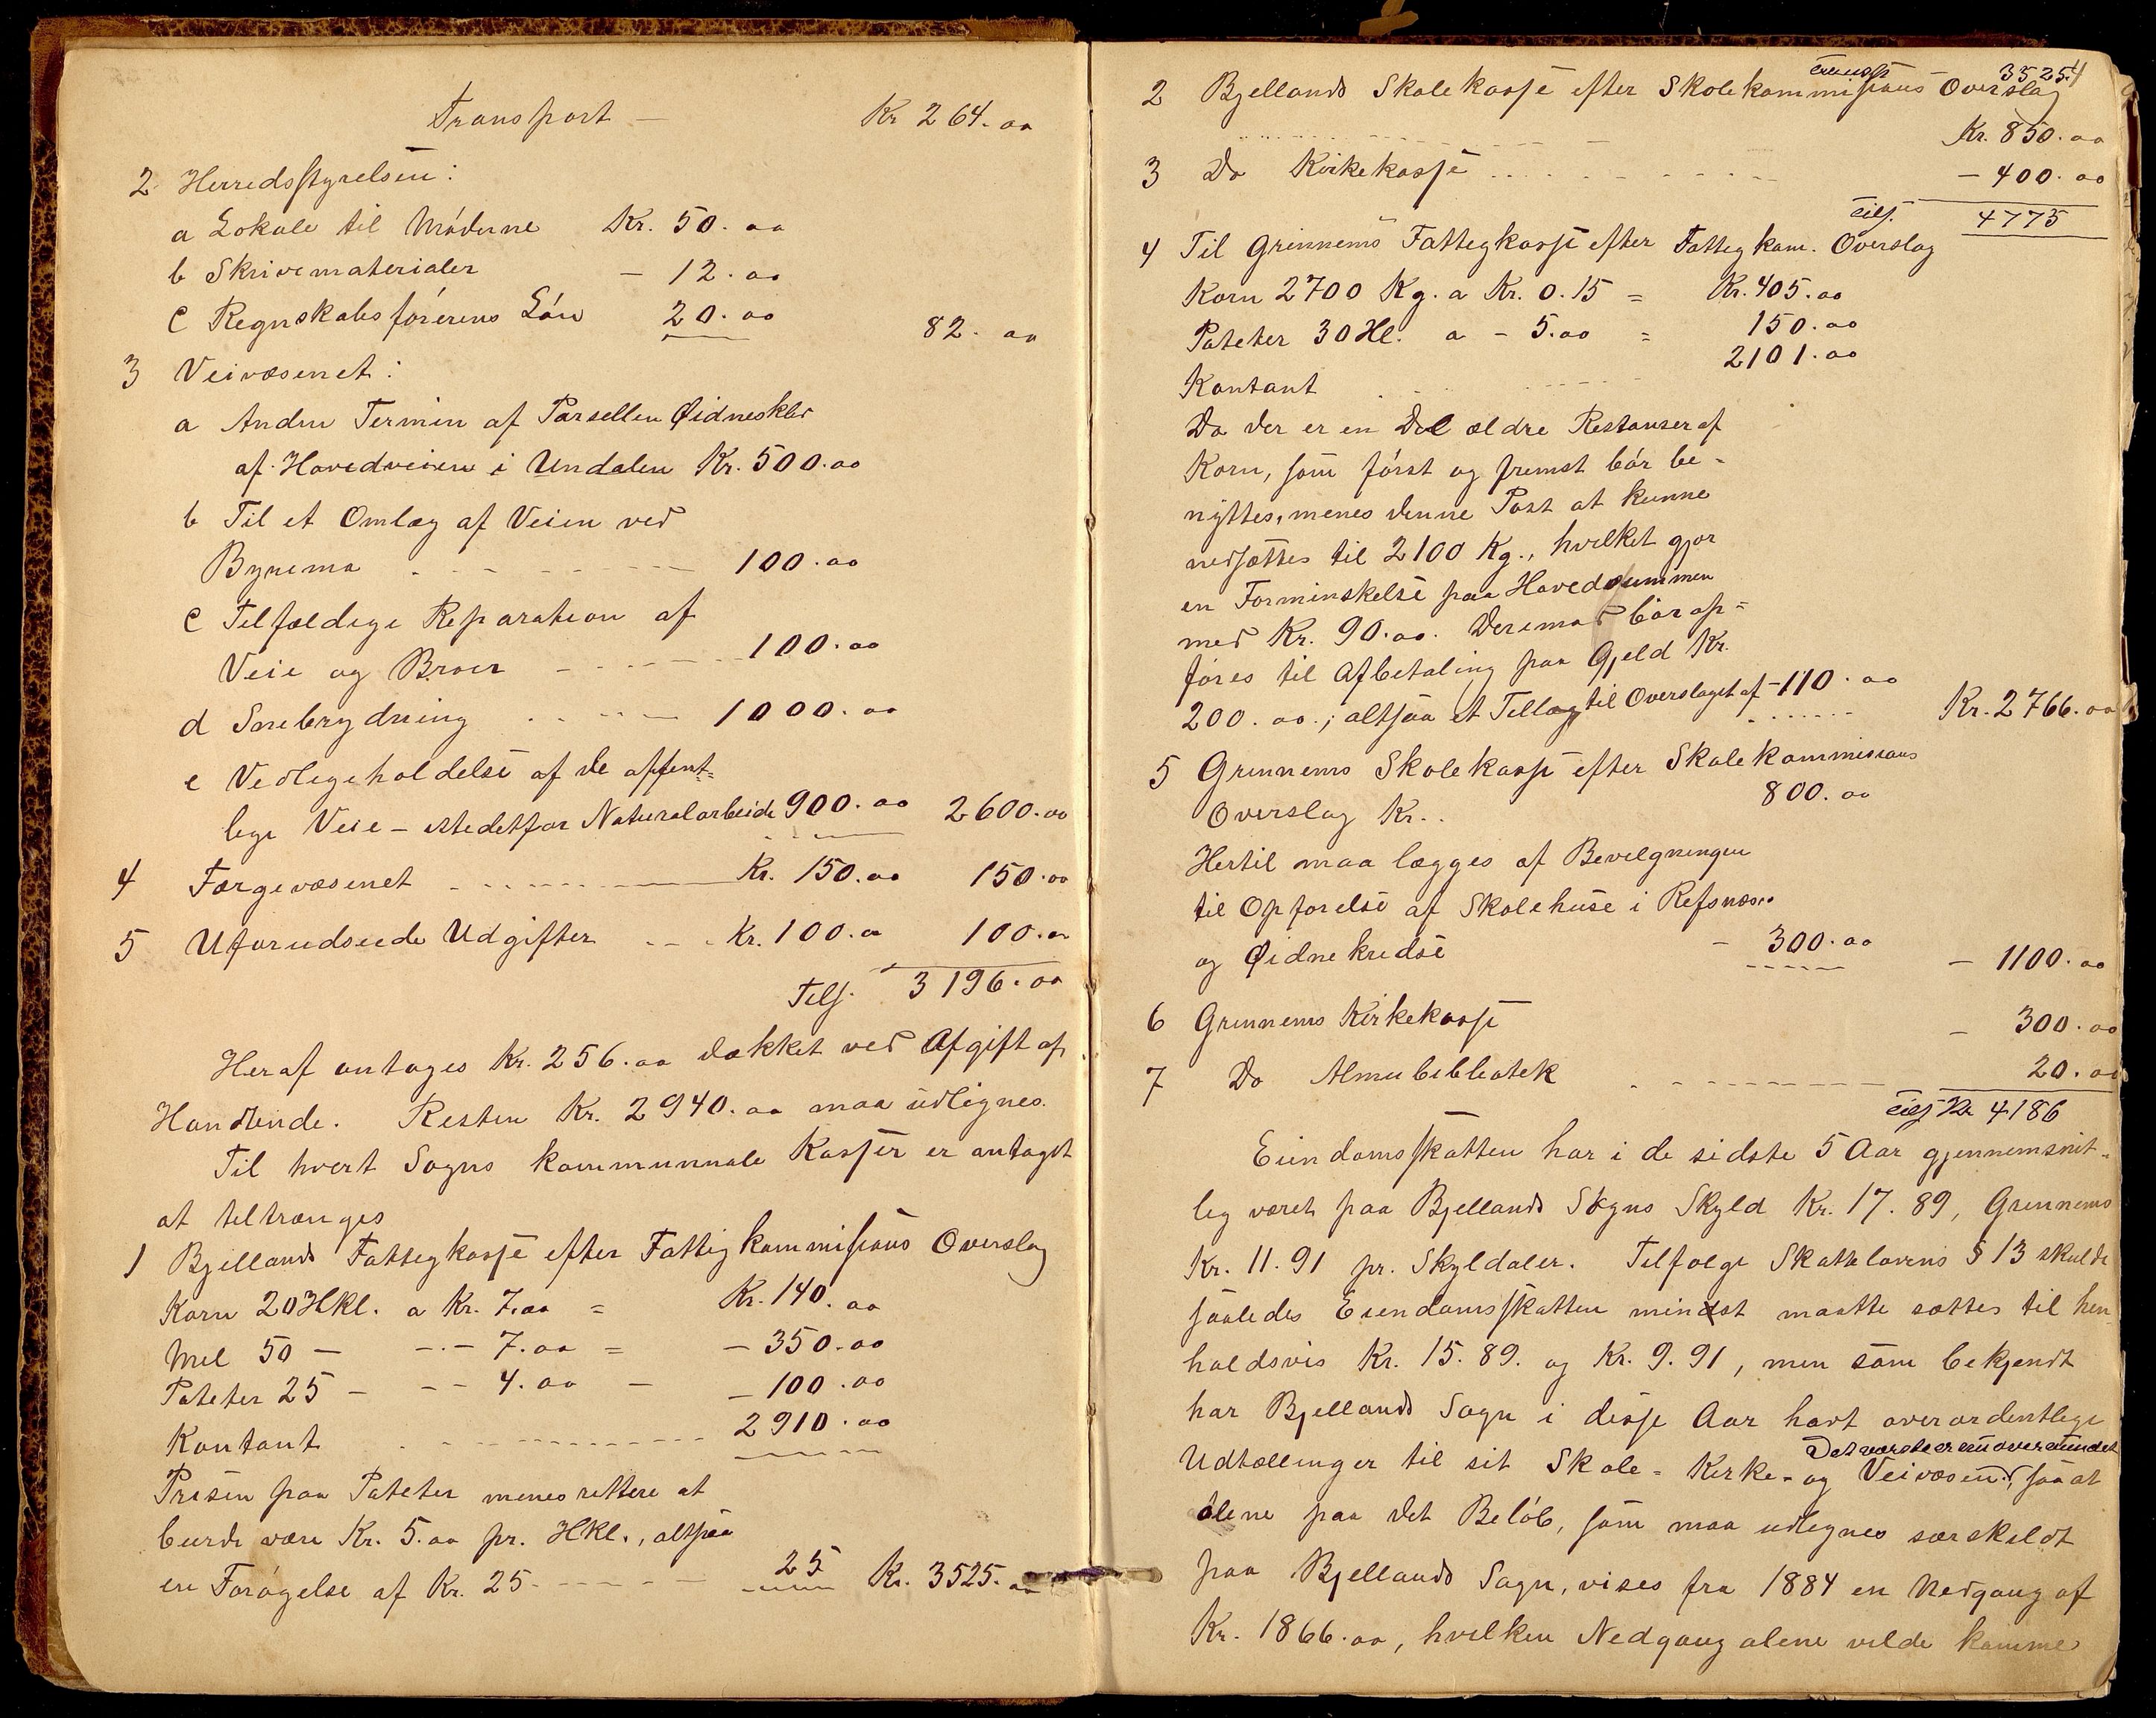 Transport — Kr 264.00
2 Herredsstyrelsen:
a Lokale til Møderne Kr. 50.00
b Skrivematerialer — 12.00
c Regnskabsførerens Løn 20.00 82.00
3 Veivæsenet:
a Anden Termin af Parsellen Øidneskler
af Hovedveien i Undalen Kr. 500.00
b Til et Omlæg af Veien ved
Byrema 100.00
c Tilfældige Reparation af
Veie og Broer 100.00
d Snebrydning 1000.00
e Vedligeholdelse af de offent-
lige Veie – istedetfor Naturalarbeide 900.00 2600.00
4 Færgevæsenet Kr. 150.00 150.00
5 Uforudseede Udgifter Kr. 100.00 100.00
Tils. 3196.00
Heraf antages Kr. 256.00 dækket ved Afgift af
Handlende. Resten Kr. 2940.00 maa udlignes.
Til hvert Sogns kommunnale Kasser er antaget
at tiltrænges
1 Bjellands Fattigkasse efter Fattigkommissions Overslag
Korn 20 Hkl. a Kr. 7.00 = Kr. 140.00
Mel 50 — - - 7.00 = — 350.00
Poteter 25 — - - 4.00 — — 100.00
Kontant 2910.00
Prisen paa Poteter menes rettere at
burde være Kr. 5.00 pr. Hkl., altsaa
en Forøgelse af Kr. 25 25 Kr. 3525.00
4
Transp 3525.
2 Bjellands Skolekasse efter Skolekommissions Overslag
Kr. 850.00
3 Do Kirkekasse — 400.00
Tils. 4775
4 Til Grinnems Fattigkasse efter Fattigkom. Overslag
Korn 2700 Kg. a Kr. 0.15 = Kr. 405.00
Poteter 30 Hl. a - 5.00 = 150.00
Kontant 2101.00
Da der er en Del ældre Restanser af
Korn, som først og fremst bør be-
nyttes, menes denne Post at kunne
nedsættes til 2100 Kg., hvilket gjør
en Forminskelse paa Hovedsummen
med Kr. 90.00. Derimod bør op-
føres til Afbetaling paa Gjeld Kr.
200.00.; altsaa et Tillæg til Overslaget af - 110.00 Kr. 2766.00
5 Grinnems Skolekasse efter Skolekommissions
Overslag Kr. 800.00
Hertil maa lægges af Bevilgningen
til Opførelse af Skolehuse i Refsnæs
og Øidne kredse — 300.00 — 1100.00
6 Grinnems Kirkekasse — 300.00
7 Do Almubibliotek 20.00
Tils Kr 4186
Eiendomsskatten har i de sidste 5 Aar gjennemsnit-
lig været paa Bjellands Sogns Skyld Kr. 17.89, Grinnems
Kr. 11.91 pr. Skyldaler. Tilfølge Skattelovens § 13 skulde
saaledes Eiendomsskatten mindst maatte sættes til hen
holdsvis Kr. 15.89. og Kr. 9.91, men som bekjendt
har Bjellands Sogn i disse Aar havt overordentlige
Det værste er nu overvundet
Udtællinger til sit Skole- Kirke- og Veivæsend, saa at
alene paa det Beløb, som maa udlignes særskildt
paa Bjellands Sogn, vises fra 1884 en Nedgang af
Kr. 1866.00, hvilken Nedgang alene vilde komme